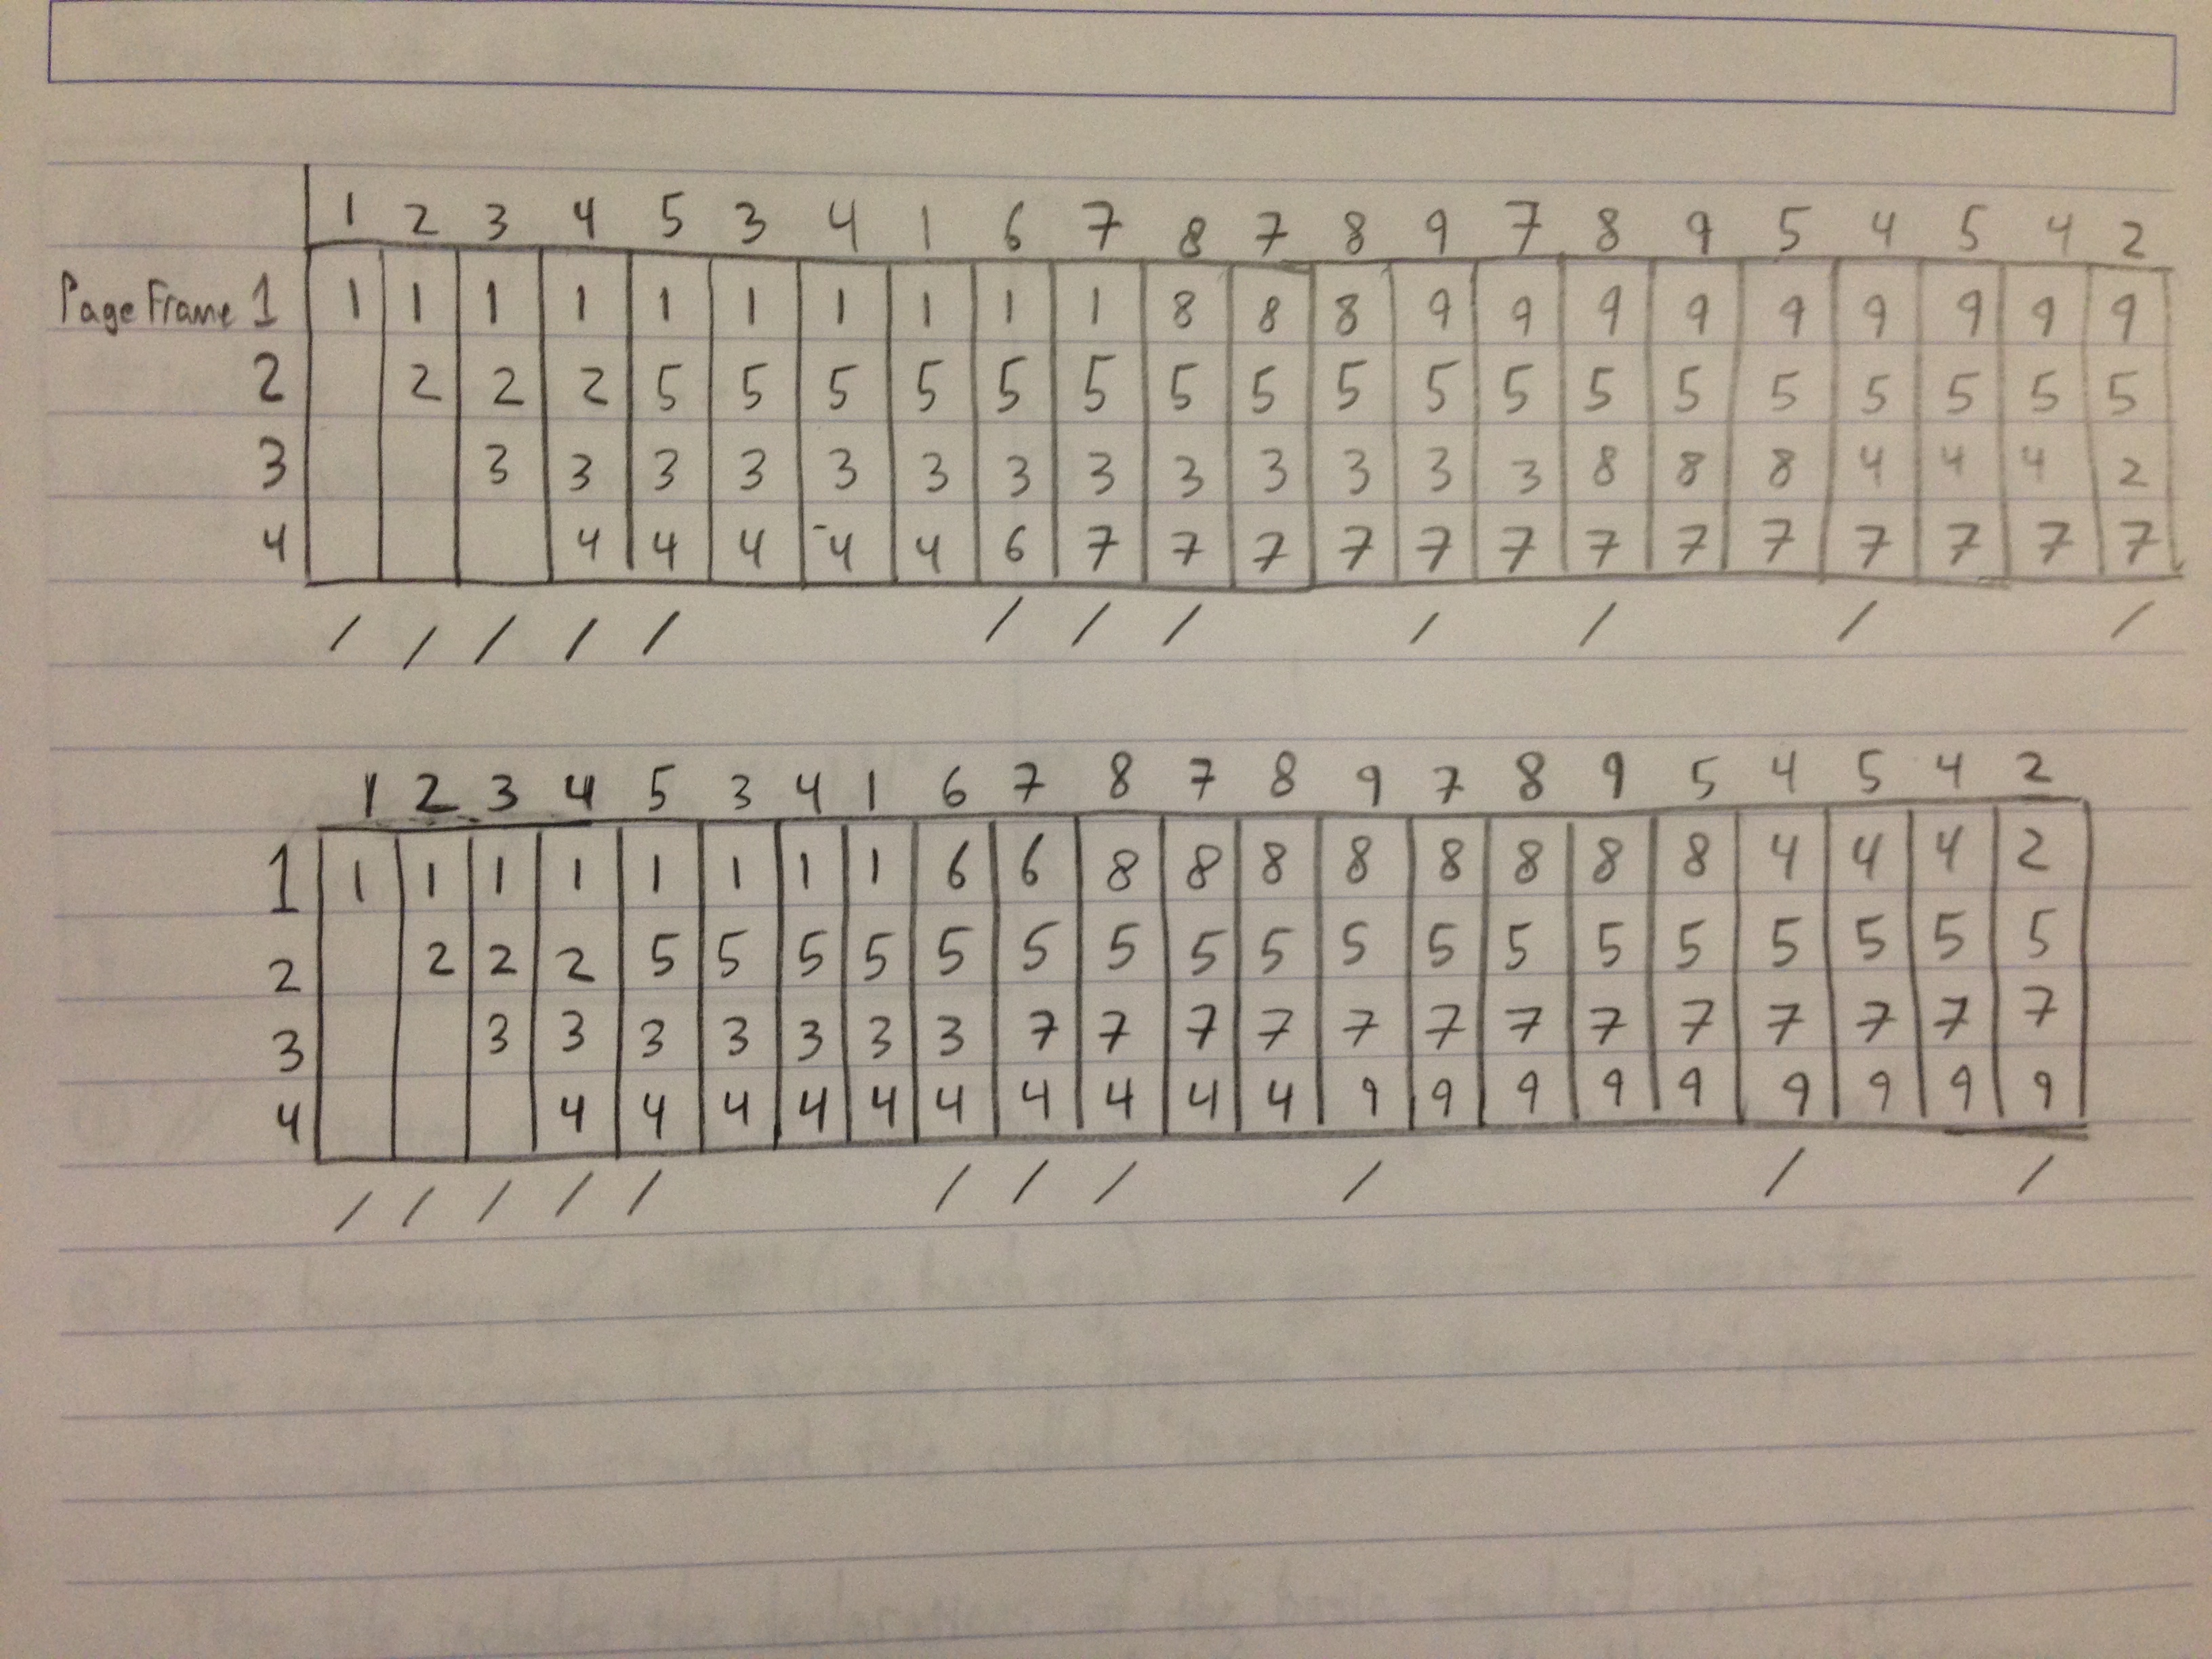 1 2 3 4 5 3 4 1 6 7 8 7 8 9 7 8 9 5 4 5 4 2
Page Frame 1 1 1 1 1 1 1 1 1 1 1 8 8 8 9 9 9 9 9 9 9 9 9
2 2 2 2 5 5 5 5 5 5 5 5 5 5 5 5 5 5 5 5 5 5
3 3 3 3 3 3 3 3 3 3 3 3 3 3 8 8 8 4 4 4 2
4 4 4 4 4 4 6 7 7 7 7 7 7 7 7 7 7 7 7 7
/ / / / / / / / / / / /
1 2 3 4 5 3 4 1 6 7 8 7 8 9 7 8 9 5 4 5 4 2
1 1 1 1 1 1 1 1 1 6 6 8 8 8 8 8 8 8 8 4 4 4 2
2 2 2 2 5 5 5 5 5 5 5 5 5 5 5 5 5 5 5 5 5 5
3 3 3 3 3 3 3 3 7 7 7 7 7 7 7 7 7 7 7 7 7
4 4 4 4 4 4 4 4 4 4 4 9 9 9 9 9 9 9 9 9
/ / / / / / / / / / /